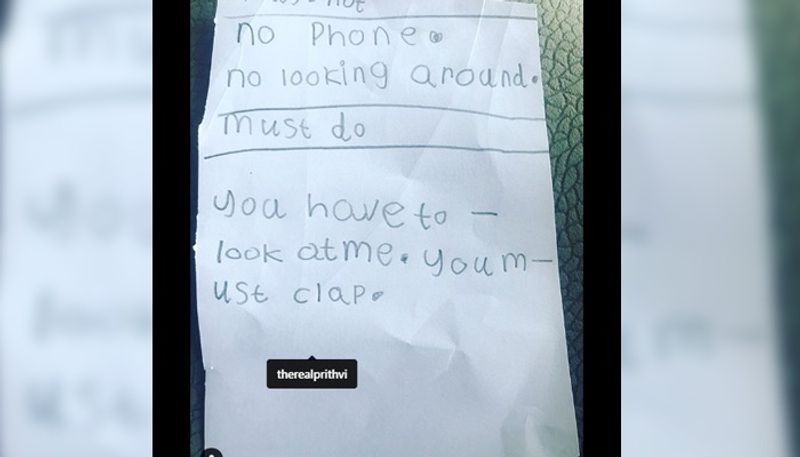 not
no Phone.
no looking around.
must do
you have to —
look at me. you m—
ust clap.
therealprithvi